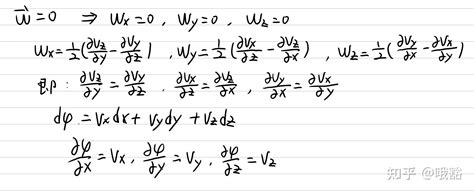 $\vec{w}=0 \Rightarrow w_x=0, w_y=0, w_z=0$
$w_x=\frac{1}{2}(\frac{\partial v_z}{\partial y}-\frac{\partial v_y}{\partial z}), w_y=\frac{1}{2}(\frac{\partial v_x}{\partial z}-\frac{\partial v_z}{\partial x}), w_z=\frac{1}{2}(\frac{\partial v_y}{\partial x}-\frac{\partial v_x}{\partial y})$
即: $\frac{\partial v_z}{\partial y}=\frac{\partial v_y}{\partial z}, \frac{\partial v_x}{\partial z}=\frac{\partial v_z}{\partial x}, \frac{\partial v_y}{\partial x}=\frac{\partial v_x}{\partial y}$
$d\varphi=v_xdx+v_ydy+v_zdz$
$\frac{\partial \varphi}{\partial x}=v_x, \frac{\partial \varphi}{\partial y}=v_y, \frac{\partial \varphi}{\partial z}=v_z$
知乎 @哦豁